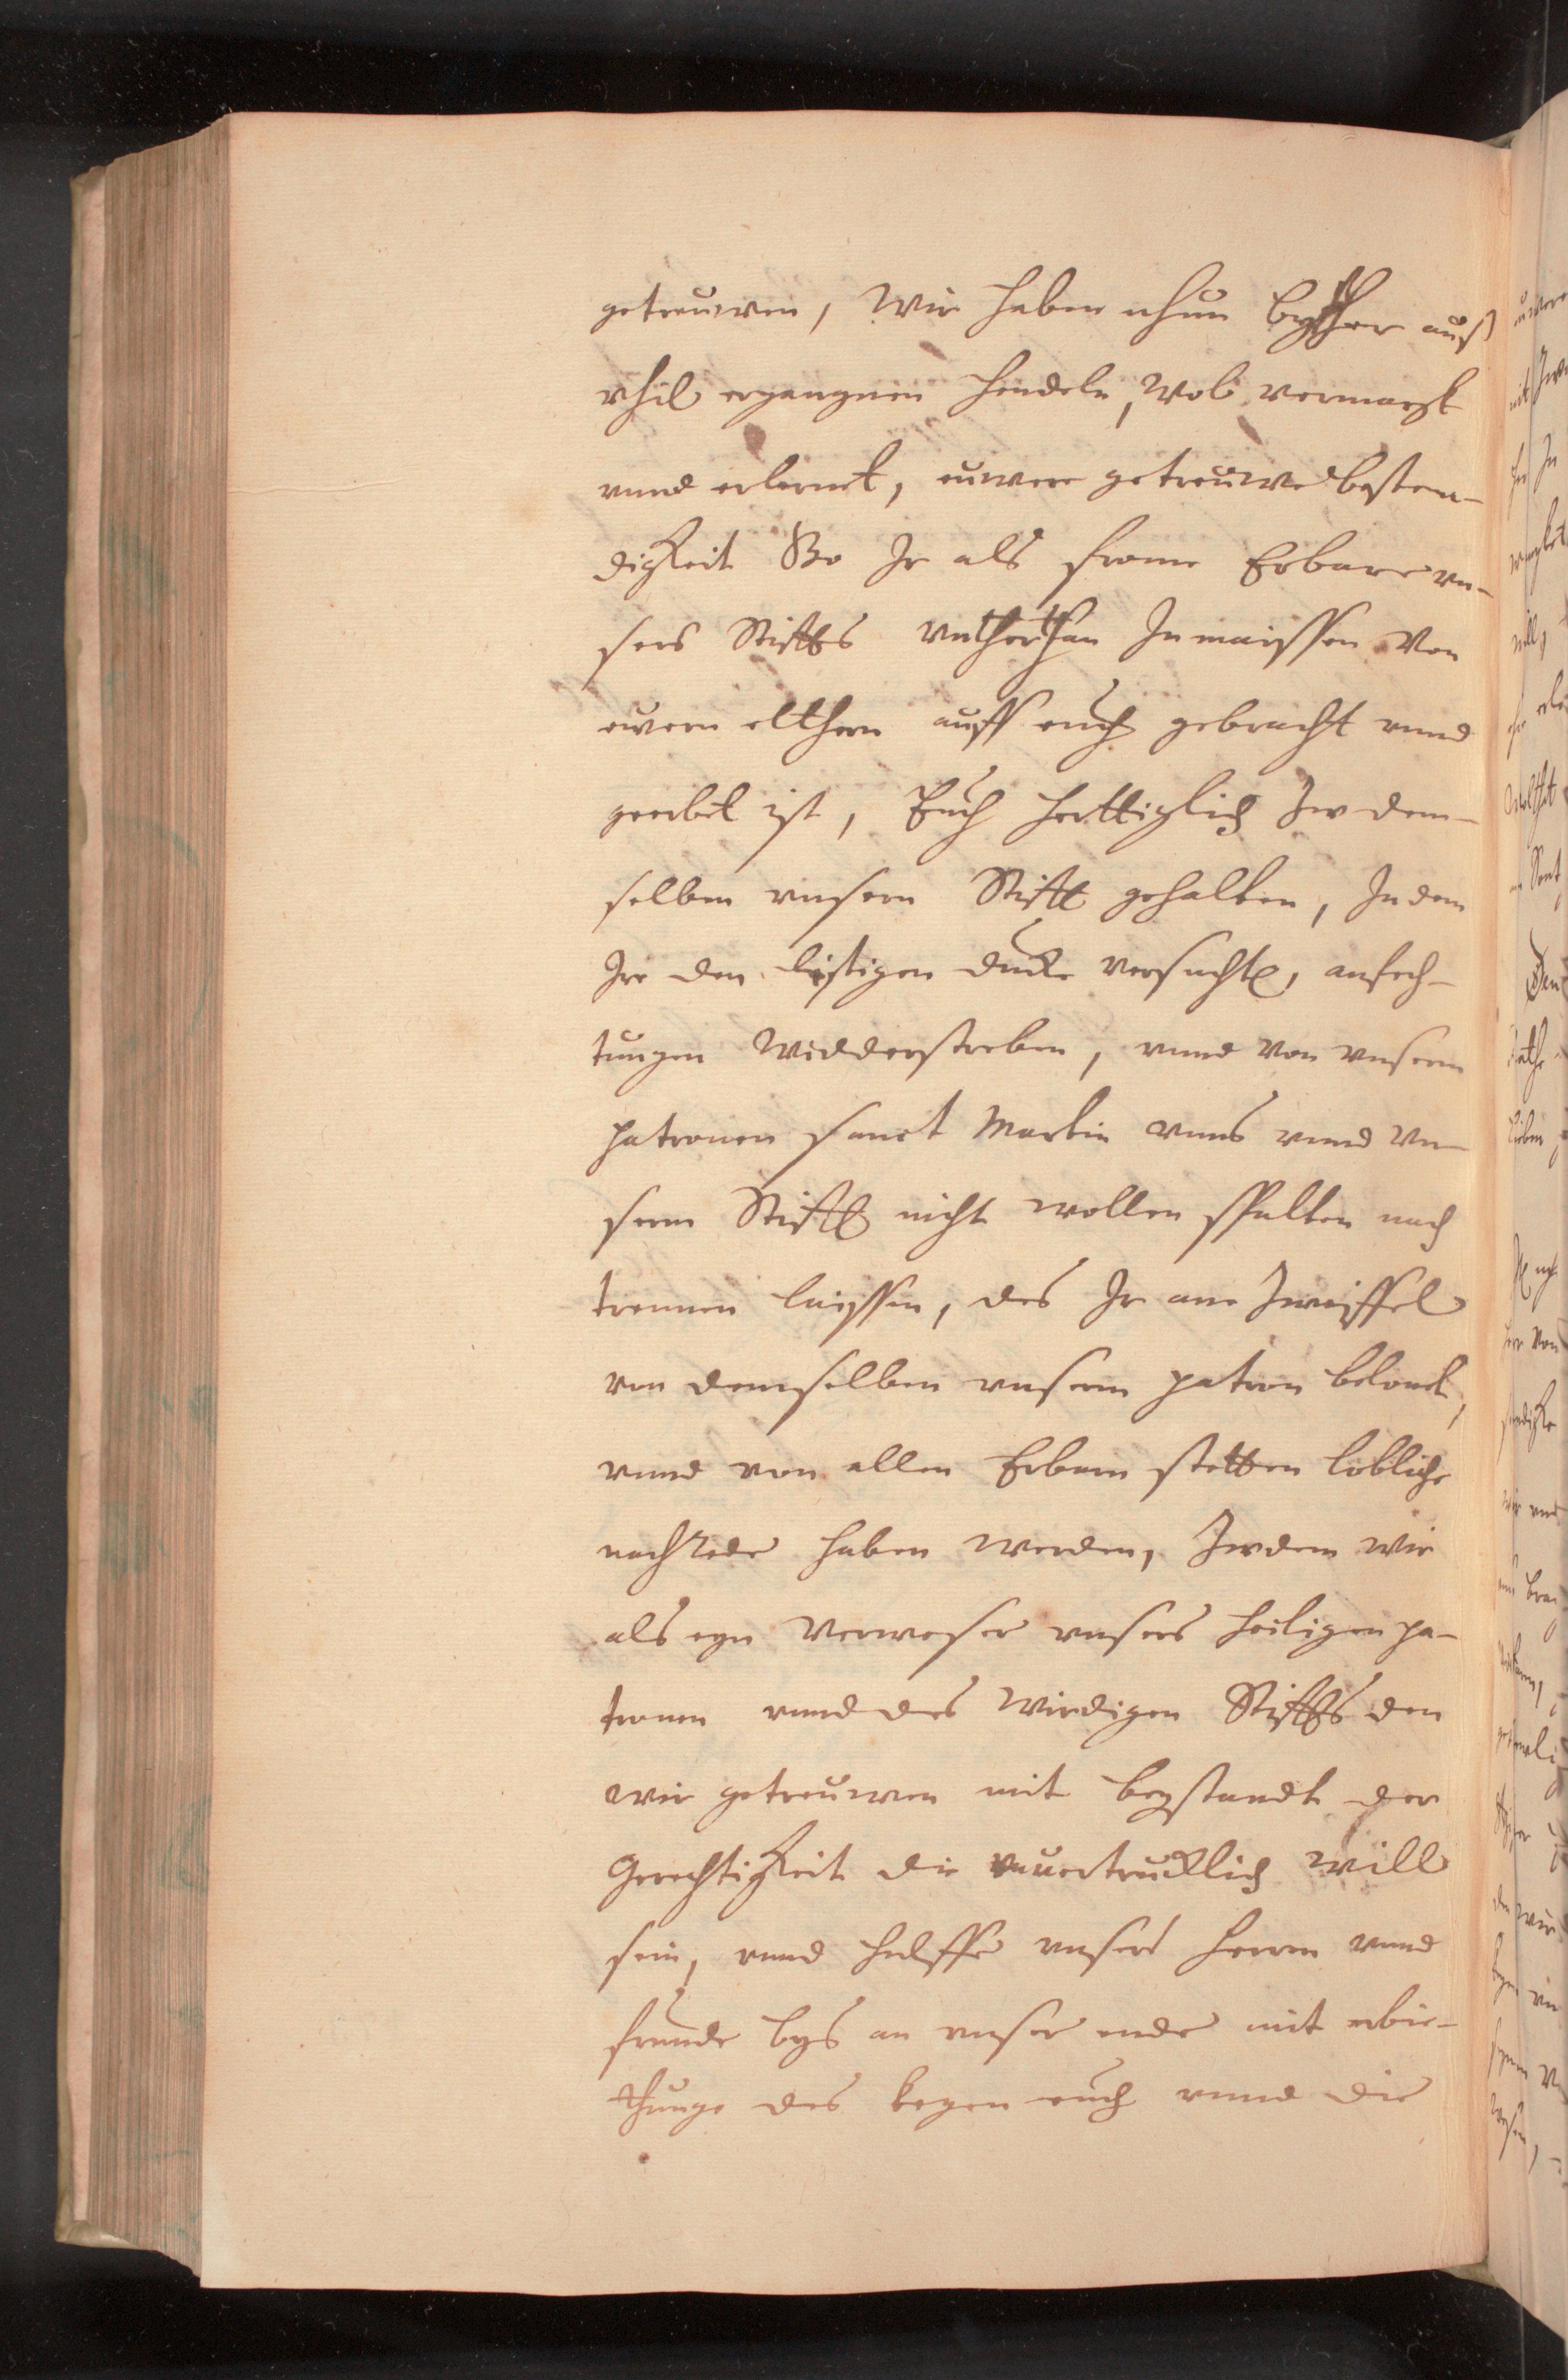 getreuwen, Wir haben nhun byßher auß
vhil ergangnen hendeln, wol vermargkt
vnnd erlernet, euwere getreuwe besten-
digkeit So Ir als frome Erbare vn-
sers Stiffts vntherthan In maissen von
ewern elthern auff euch gebracht vnnd
geerbet ist, Euch hertiglich Zw dem-
selben vnserm Stifft gehalten, In dem
Ire den listigen duck versuchte, anfech-
tungen widderstreben, vnnd von vnserm
patronen sanct Martin vnns vnnd vn-
serm Stifft nicht wollen spalten noch
trennen laissen, des Ir ane Zweiffel
von demselben vnserm patron belonet,
vnnd von allen Erbarn stetten lobliche
nachrede haben werden, Zwdem wir
als eyn verweser vnsers heiligen pa-
tronen vnnd des wirdigen Stiffts den
wir getreuwen mit beystandt der
Gerechtigkeit die vnuertrucklich will
sein, vnnd hulffe vnsers herren vnnd
frunde bys an vnser ende mit erbie-
thunge des kegen euch vnnd die